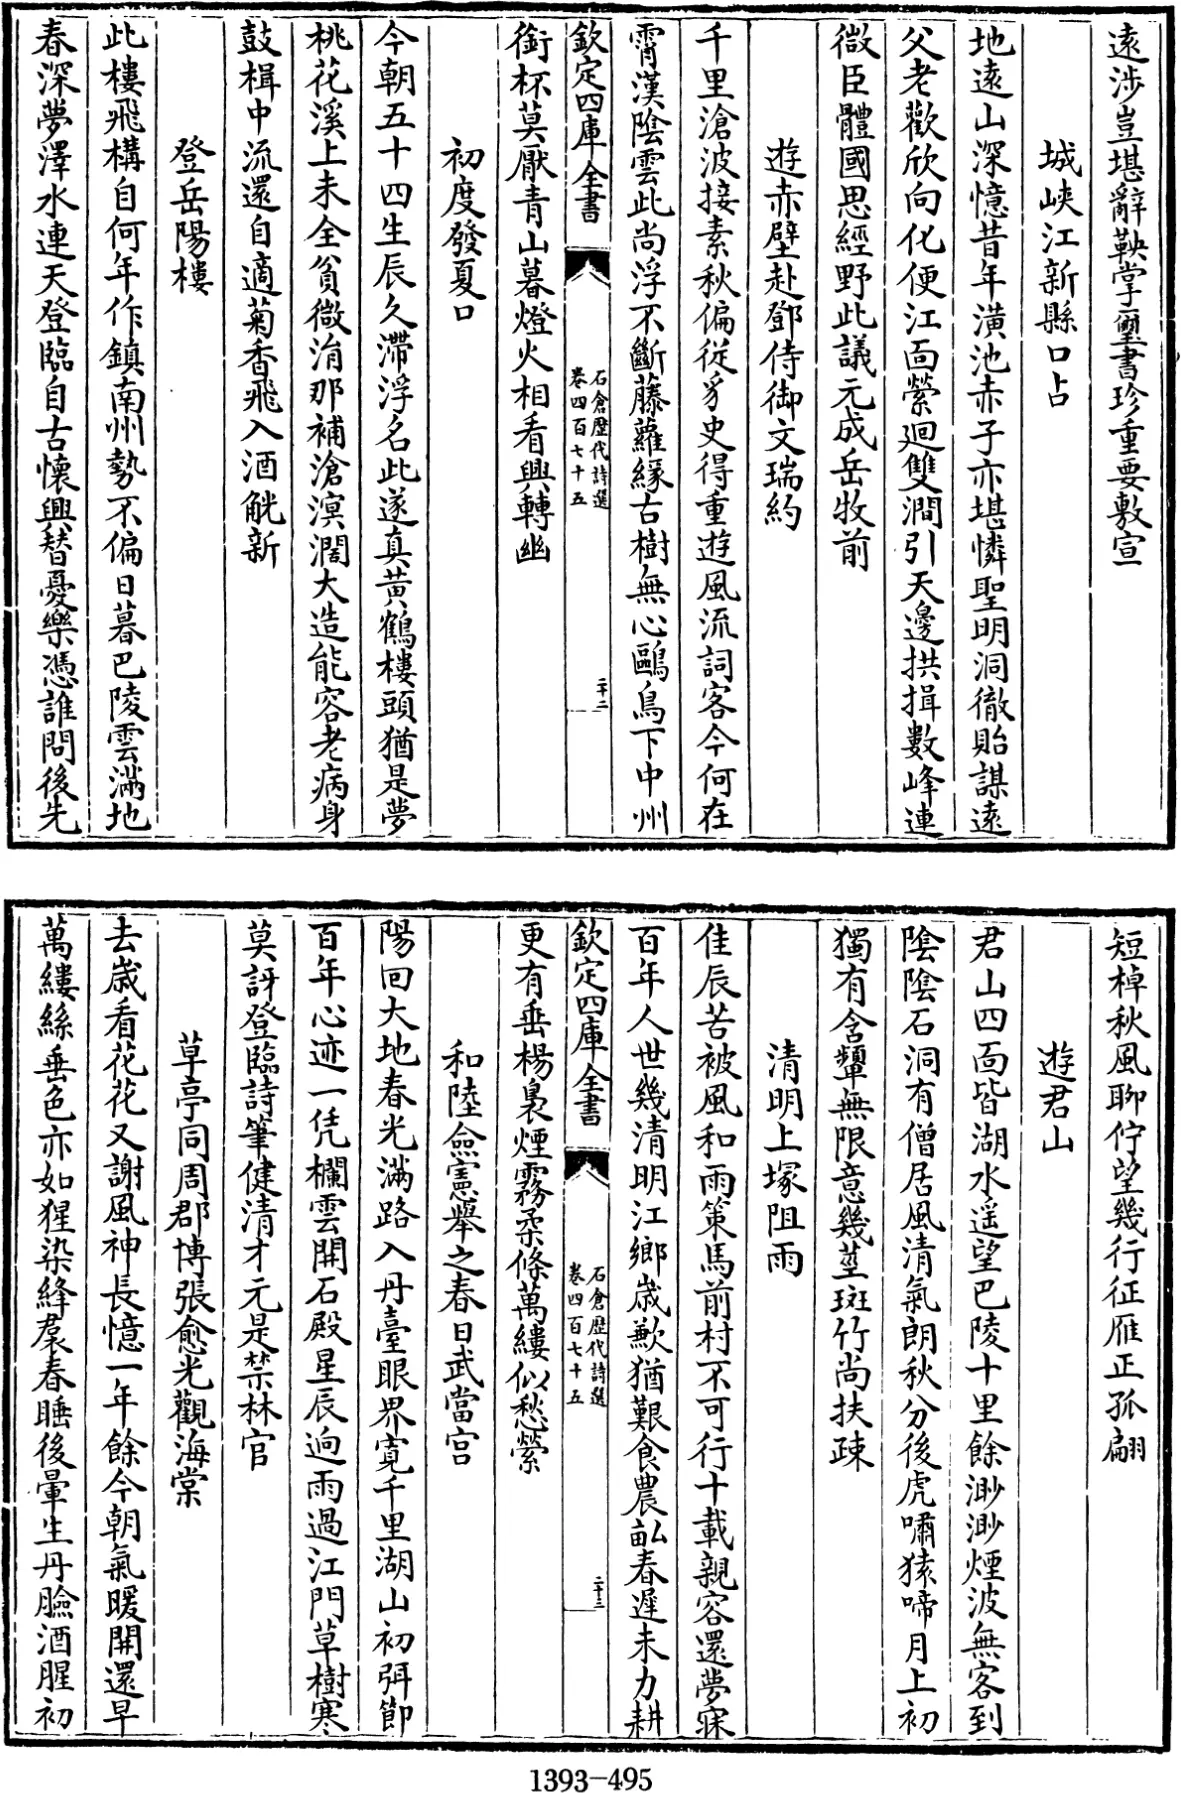 遠涉豈堪辭鞅掌璽書珍重要敷宣
城峽江新縣口占
地遠山深憶昔年潢池赤子亦堪憐聖明洞徹貽謀遠
父老歡欣向化便江面縈迴雙澗引天邊拱揖數峰連
微臣體國思經野此議元成岳牧前
遊赤壁赴鄧侍御文瑞約
千里滄波接素秋偏從豸史得重遊風流詞客今何在
霄漢陰雲此尚浮不斷藤蘿緣古樹無心鷗鳥下中州
欽定四庫全書
石倉歷代詩選
卷四百七十五
二十二
銜杯莫厭青山暮燈火相看興轉幽
初度發夏口
今朝五十四生辰久滯浮名此遂真黃鶴樓頭猶是夢
桃花溪上未全貧微涓那補滄溟濶大造能容老病身
鼓楫中流還自適菊香飛入酒觥新
登岳陽樓
此樓飛構自何年作鎮南州勢不偏日暮巴陵雲滿地
春深夢澤水連天登臨自古懷興替憂樂憑誰問後先
短棹秋風聊佇望幾行征雁正孤翩
遊君山
君山四面皆湖水遥望巴陵十里餘渺渺煙波無客到
陰陰石洞有僧居風清氣朗秋分後虎嘯猿啼月上初
獨有含顰無限意幾莖斑竹尚扶疎
清明上塚阻雨
佳辰苦被風和雨策馬前村不可行十載親容還夢寐
百年人世幾清明江鄉歲歉猶艱食農畝春遲未力耕
欽定四庫全書
石倉歷代詩選
卷四百七十五
二十三
更有垂楊裊煙霧柔條萬縷似愁縈
和陸僉憲舉之春日武當宫
陽回大地春光滿路入丹臺眼界寬千里湖山初弭節
百年心迹一凭欄雲開石殿星辰逈雨過江門草樹寒
莫訝登臨詩筆健清才元是禁林官
草亭同周郡博張愈光觀海棠
去歲看花花又謝風神長憶一年餘今朝氣暖開還早
萬縷絲垂色亦如猩染絳裠春睡後暈生丹臉酒醒初
1393-495